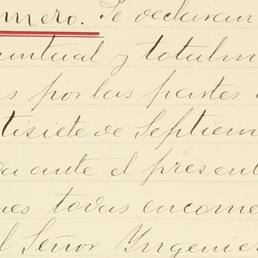 mero. Se declaran
untual y totalm
s por las partes
tisiete de Septiem
a ante el present
nes todas encome
l Señor Yngenier